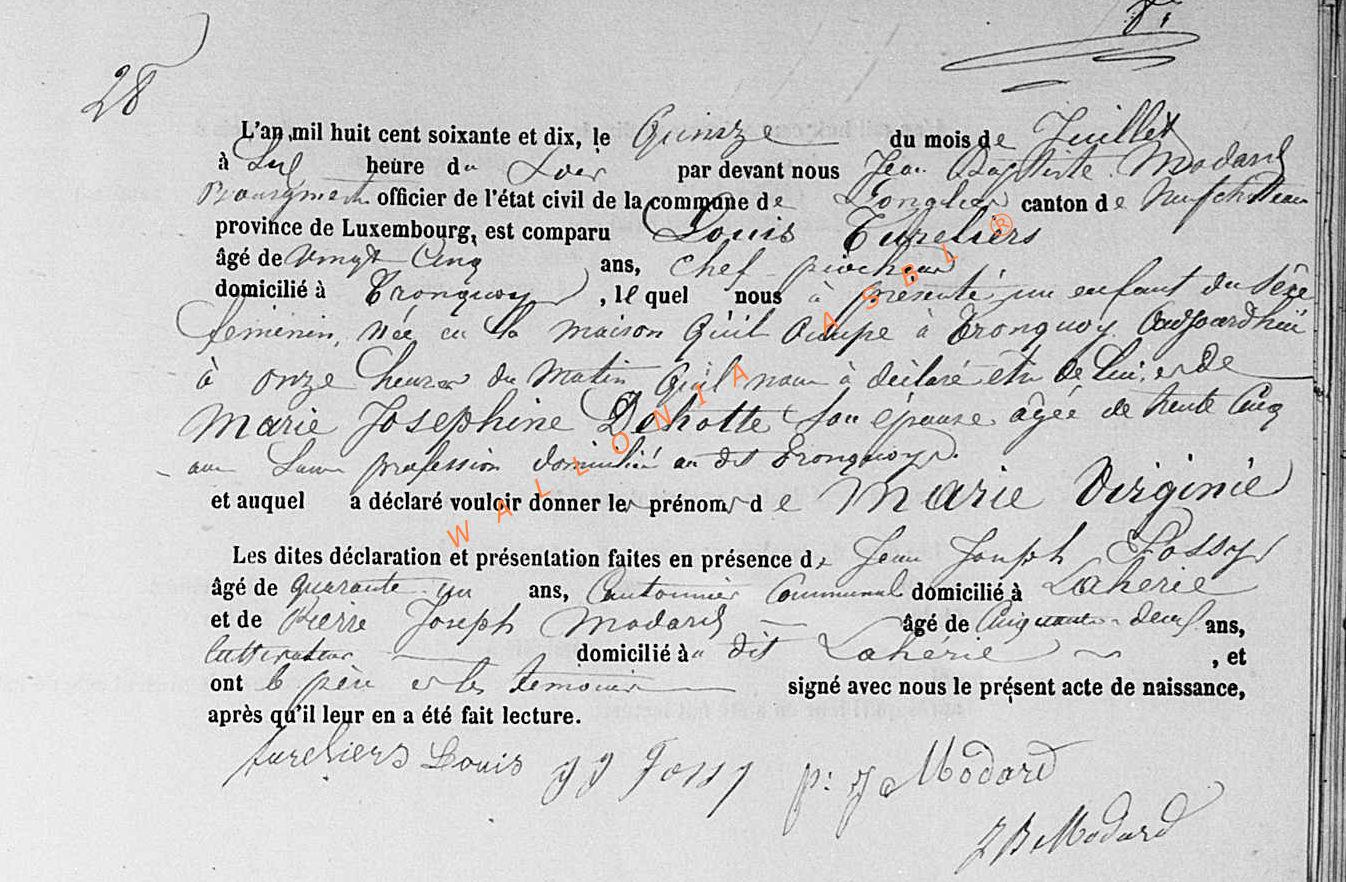 28
L'an mil huit cent soixante et dix, le Quinze du mois de Juillet
à Six heure du Soir par devant nous Jean Baptiste Modard
Bourgmestre officier de l'état civil de la commune de Longlier canton de Neufchâteau
province de Luxembourg, est comparu Louis Tureliers
âgé de vingt Cinq ans, Chef piocheur
domicilié à Tronquoy, lequel nous à présenté un enfant du Sexe
feminin, Née en la maison Qu'il Occupe à Tronquoy Audjourdhui
à onze heures du Matin Qu'il nous à déclaré etre de Lui, et de
Marie Josephine Dehotte Son épouse âgée de trente Cinq
ans Sans profession domicilié au dit Tronquoy.
et auquel a déclaré vouloir donner les prénoms de Marie Virginie
Les dites déclaration et présentation faites en présence de Jean Joseph Fossy
âgé de quarante un ans, Cantonnier Communal domicilié à Lahérie
et de Pierre Joseph Modard âgé de Cinquante deux ans,
Cultivateur domicilié au dit Lahérie, et
ont le père et les temoins signé avec nous le présent acte de naissance,
après qu'il leur en a été fait lecture.
Tureliers Louis J J Fossy p: J Modard
J B Modard
WALLONIA ASBL ®